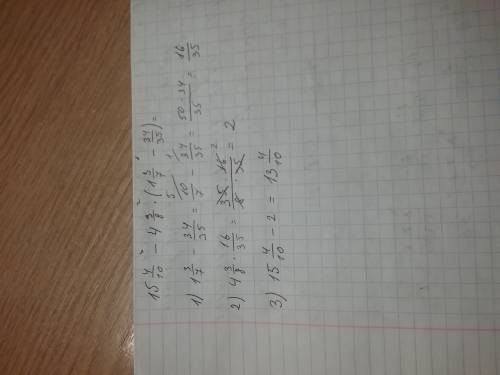 15 4/10 − 4 3/8 · (1 3/7 − 34/35) =
1) 1 3/7 − 34/35 = 10/7 − 34/35 = 50−34/35 = 16/35
2) 4 3/8 · 16/35 = 35·16/8·35 = 2
3) 15 4/10 − 2 = 13 4/10